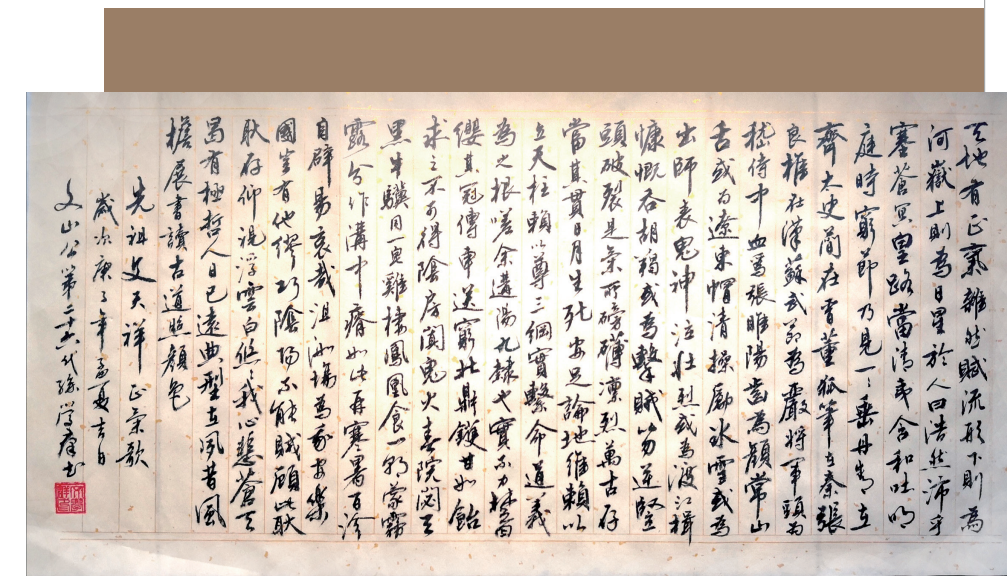 天地有正氣雜然賦流形下則為
河嶽上則為日星於人曰浩然沛乎
塞蒼冥皇路當清夷含和吐明
庭時窮節乃見一一垂丹青在
齊太史簡在晉董狐筆在秦張
良椎在漢蘇武節為嚴將軍頭為
嵇侍中血為張睢陽齒為顏常山
舌或為遼東帽清操勵冰雪或為
出師表鬼神泣壯烈或為渡江楫
慷慨吞胡羯或為擊賊笏逆豎
頭破裂是氣所磅礴凜烈萬古存
當其貫日月生死安足論地維賴以
立天柱賴以尊三綱實繫命道義
為之根嗟余遘陽九隸也實不力楚囚
纓其冠傳車送窮北鼎鑊甘如飴
求之不可得陰房闃鬼火春院閟天
黑牛驥同一皂雞棲鳳凰食一朝蒙霧
露分作溝中瘠如此再寒暑百沴
自辟易哀哉沮洳場為我安樂
國豈有他繆巧陰陽不能賊顧此耿
耿存仰視浮雲白悠悠我心悲蒼天
曷有極哲人日已遠典型在夙昔風
檐展書讀古道照顏色
先祖文天祥正氣歌
歲次庚子年孟夏吉日
文山公第二十六代孫學書